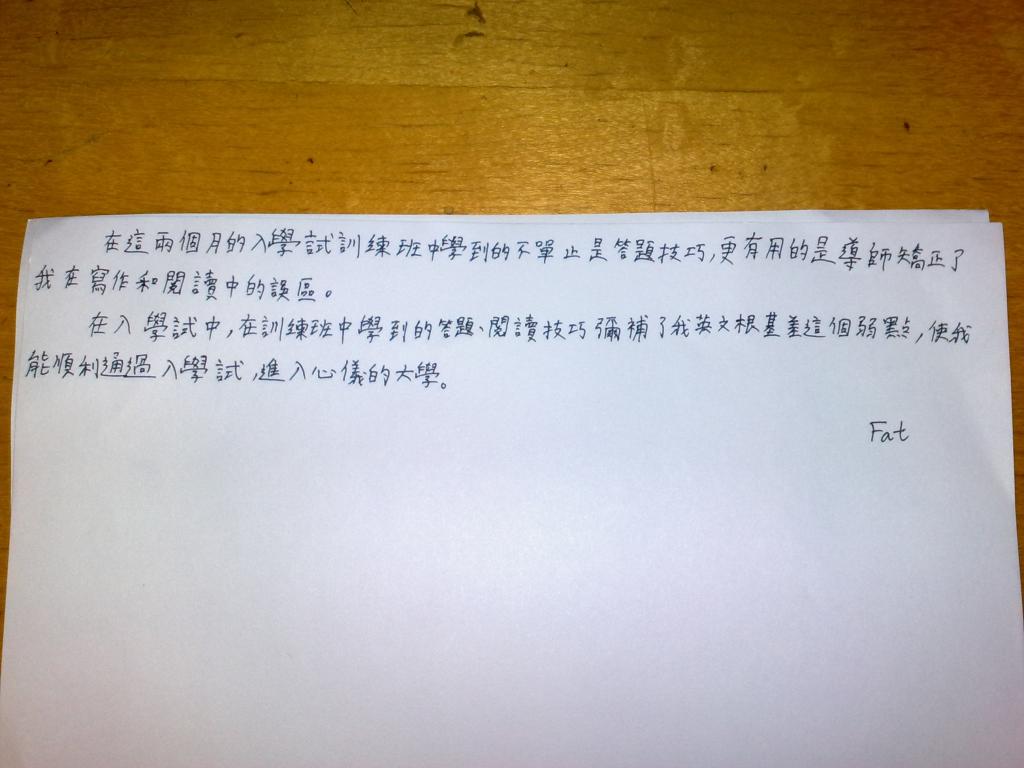 在這兩個月的入學試訓練班中學到的不單止是答題技巧,更有用的是導師矯正了
我在寫作和閱讀中的誤區。
在入學試中,在訓練班中學到的答題、閱讀技巧彌補了我英文根基差這個弱點,使我
能順利通過入學試,進入心儀的大學。
Fat